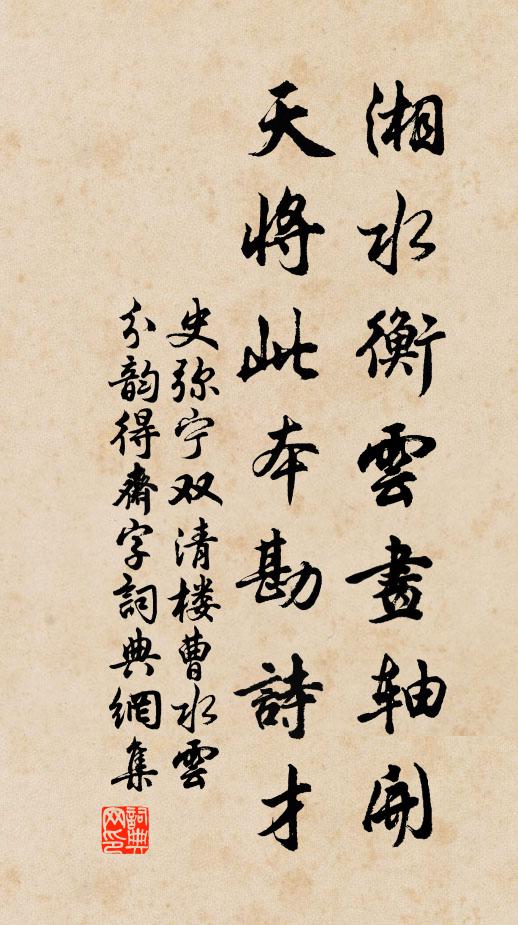 湘水衡雲畫軸開
天将此本勘詩才
史弥宁双清楼曹水雲
分韵得齋字詞典網集
詞典网印